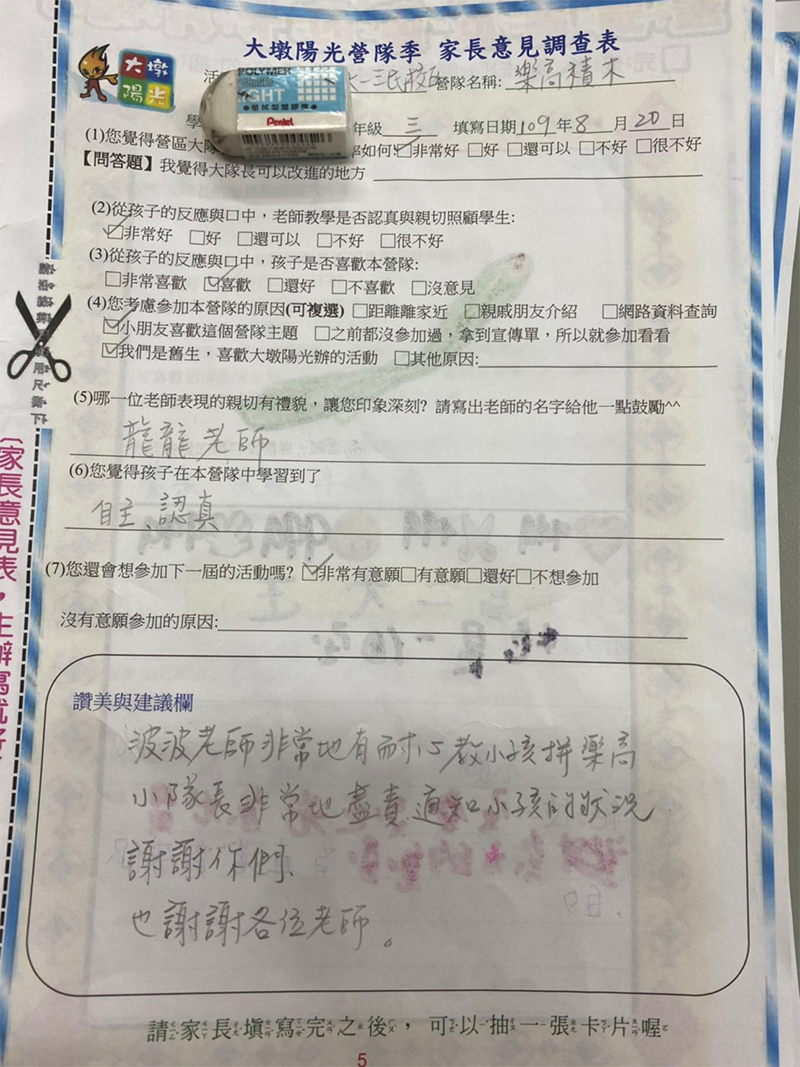 大墩陽光營隊季 家長意見調查表
大墩
陽光
活 三民校區 營隊名稱: 樂高積木
POLYMER
Pentel
學 年級 三 填寫日期109年8月20日
(1)您覺得營區大隊 如何?☑非常好 □好 □還可以 □不好 □很不好
【問答題】我覺得大隊長可以改進的地方
(2)從孩子的反應與口中，老師教學是否認真與親切照顧學生:
☑非常好 □好 □還可以 □不好 □很不好
(3)從孩子的反應與口中，孩子是否喜歡本營隊:
□非常喜歡 ☑喜歡 □還好 □不喜歡 □沒意見
(4)您考慮參加本營隊的原因(可複選) □距離離家近 □親戚朋友介紹 □網路資料查詢
☑小朋友喜歡這個營隊主題 □之前都沒參加過，拿到宣傳單，所以就參加看看
☑我們是舊生，喜歡大墩陽光辦的活動 □其他原因:
(5)哪一位老師表現的親切有禮貌，讓您印象深刻? 請寫出老師的名字給他一點鼓勵^^
龍龍老師
(6)您覺得孩子在本營隊中學習到了
自主、認真
(7)您還會想參加下一屆的活動嗎? ☑非常有意願□有意願□還好□不想參加
沒有意願參加的原因:
讚美與建議欄
波波老師非常地有耐心教小孩拼樂高
小隊長非常地盡責通知小孩的狀況
謝謝你們、
也謝謝各位老師。
請家長填寫完之後，可以抽一張卡片喔
5